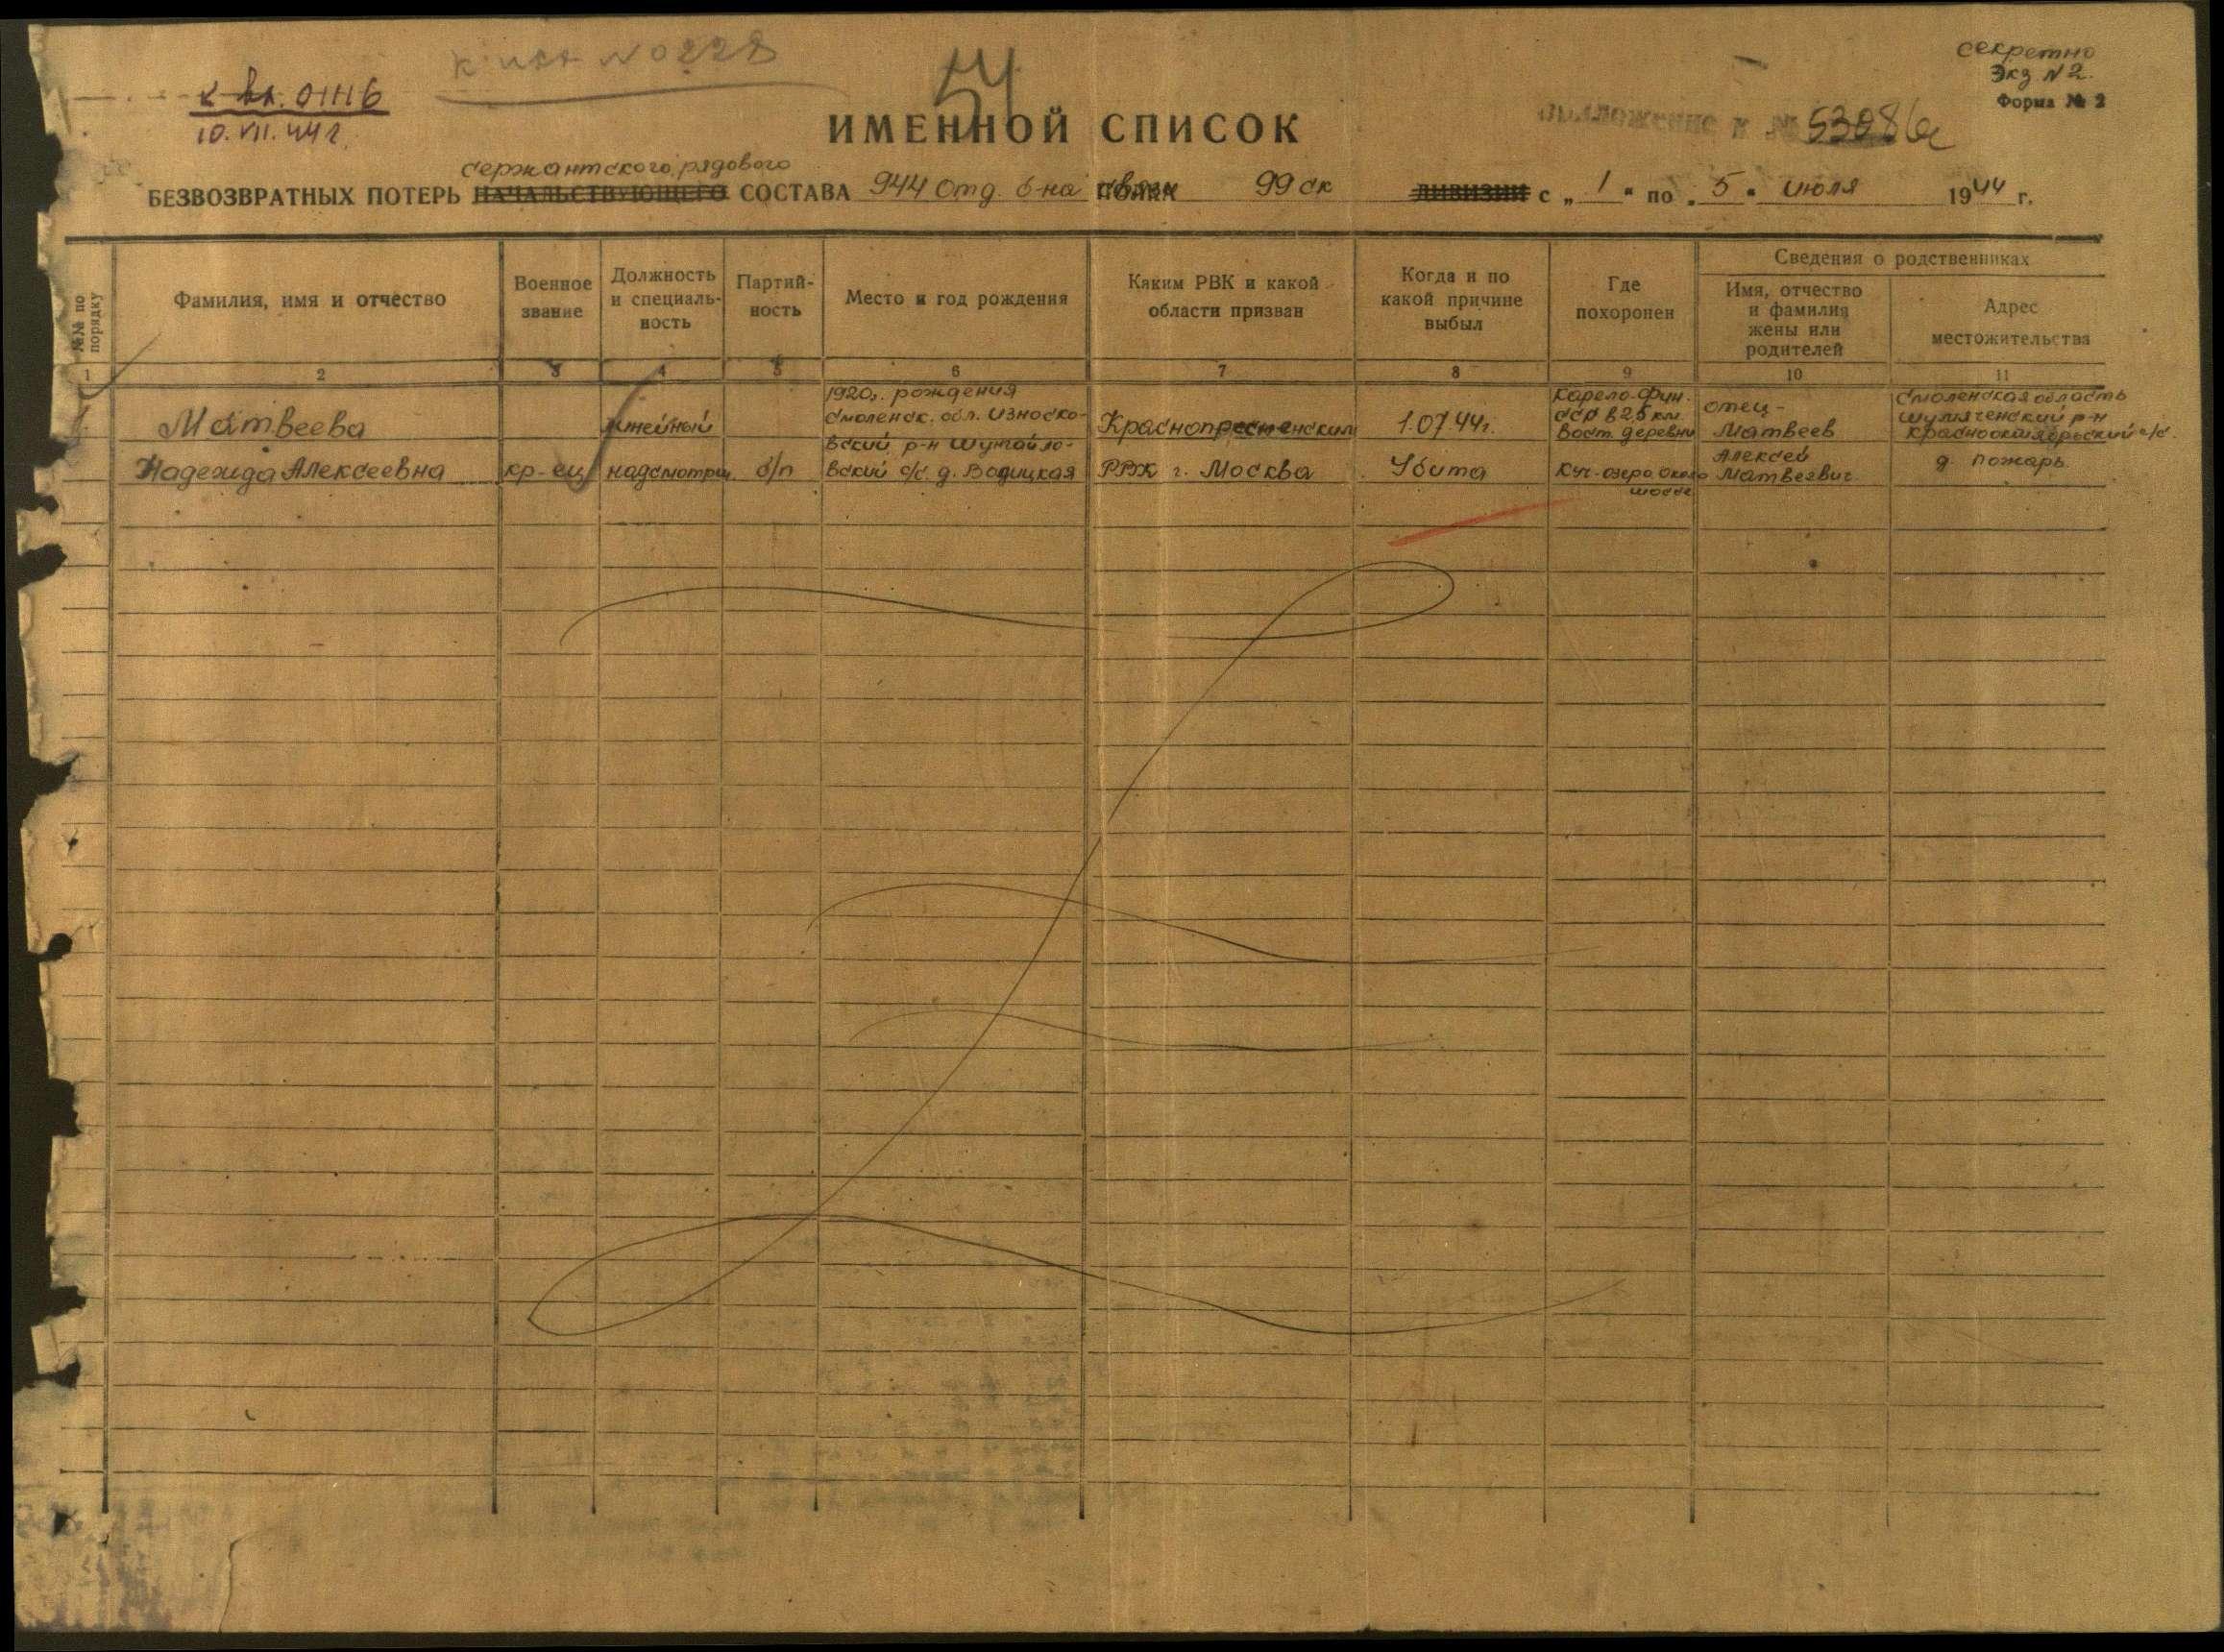 секретно
Экз №2.
Форма № 2
к вх. 01116
10.VII.44 г.
к исх №0228
54
ИМЕННОЙ СПИСОК
приложение к № 53086с
сержантского, рядового
БЕЗВОЗВРАТНЫХ ПОТЕРЬ НАЧАЛЬСТВУЮЩЕГО СОСТАВА 944 отд. б-на связи 99 ск ДИВИЗИИ с „ 1 " по „ 5 " июля 1944 г.
№№ по порядку
Фамилия, имя и отчество
Военное
звание
Должность
и специаль-
ность
Партий-
ность
Место и год рождения
Каким РВК и какой
области призван
Когда и по
какой причине
выбыл
Где
похоронен
Сведения о родственниках
Имя, отчество
и фамилия
жены или
родителей
Адрес
местожительства
1 2 3 4 5 6 7 8 9 10 11
Матвеева
Надежда Алексеевна
кр-ец
линейный
надсмотрщ.
б/п
1920г. рождения
Смоленск. обл. Износко-
вский р-н
вский с/с. д.
Краснопресненским
РВК г. Москва
1.07.44г.
Убита
Карело-Фин.
ССР в 2,5 км.
вост. деревни
Куч-озеро около
шоссе
отец-
Матвеев
Алексей
Матвеевич
Смоленская область
Шумяченский р-н
Краснооктябрьский с/с.
д. Пожарь